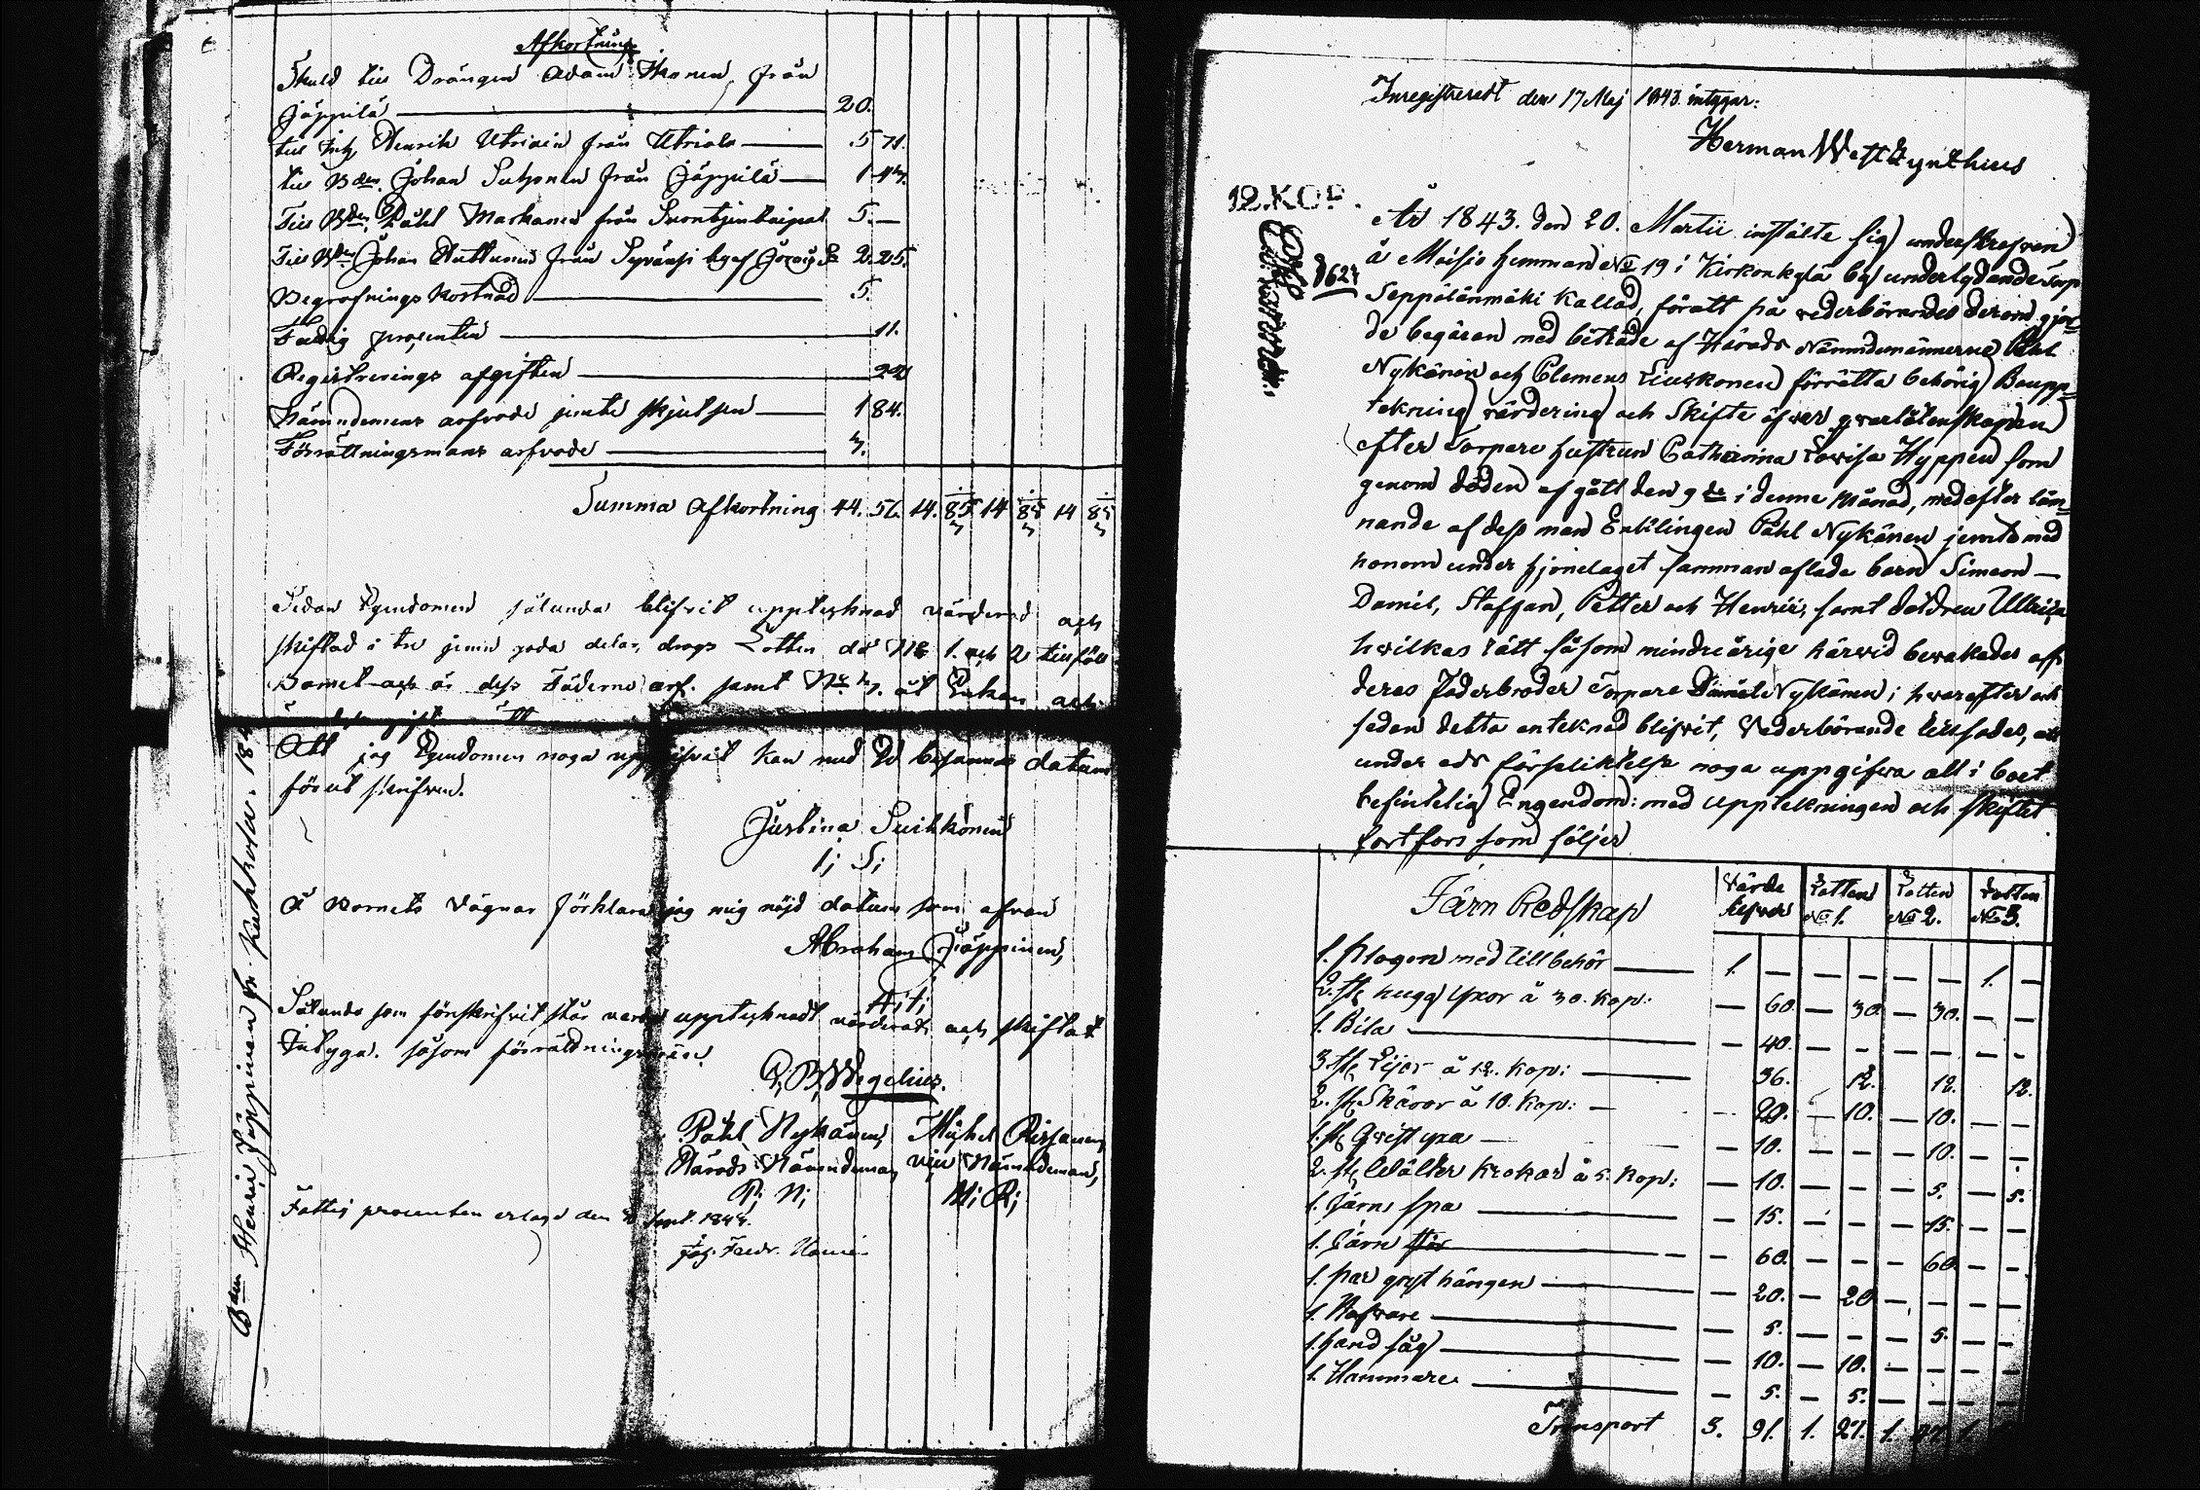 Afkortning
Skuld till Drängen Adam Ikonen, från
Jäppilä 20.
till Enk. Henrik Utriain från Utriala 5 71.
till Bden Johan Suhonen från Jäppilä 1 47.
Till Bden Påhl Markanen från 5. —
Till Bden Johan Huttunen från Syvänsi by af Jorois S: 2. 25.
Begrafnings kostnad 5.
Fattig procenten 11.
Registrerings afgiften 22
Nämndemens arfvode jemte skjutsen 1 84.
Förrättningsmans arfvode 3.
Summa Afkortning 44. 56. 14. 85 14 85 14 85
Sedan Egendomen sålunda blifvit upptecknad värderad och
skiftad i tre jemn goda delar, drogs Lotten då No 1. och 2 tillföll
Barnet och är dess Fäderne arf. samt No 3. åt Enkan och
Att jag Egendomen noga uppgifvit kan med Ed besannas datum
förut skrifven.
Justina Suihkonen
I; S;
Å Barnets vägnar förklarar jag mig nöjd datum som ofvan
Abraham Jäppinen,
Sålunda som förskrifvit står vara upptecknadt värderadt och skiftat
Intyga. såsom förrättningsmän.
C, B, Wegelius.
Påhl Nykänen, Michel Rissanen,
Härads Nämndeman, vice Nämndeman,
P; N; M; R;
Fattig procenten erlagd den Sept. 1844.
Joh. Fredr.
Bden Henric Jäppinen fr. 184
Inregistreradt den 17 Maj 1843. intygar:
Herman Westzynthius
12. KOP.
§ 62
År 1843. den 20. Martii instälte sig underskrefven
å Moisio hemman No 19 i Kirkonkylä by underlydande Torp
Seppälänmäki kallad, föratt på vederbörandes derom gjor-
de begäran med biträde af Härads Nämndemännerne Påhl
Nykänen och Clemens Liuskonen förrätta behörig Boupp-
tekning värdering och Skifte öfver qvarlåtenskapen
efter Torpare hustrun Catharina Lovisa Hyppen som
genom döden afgått den 9de i denne månad, med efter läm-
nande af dess man Enklingen Påhl Nykänen jemte med
honom under hjonelaget samman aflade barn Simeon —
Daniel, Staffan, Petter och Henric, samt dottren Ulrica
hvilkas rätt såsom minderårige härvid bevakades af
deras Faderbroder Torpare Daniel Nykänen; hvarefter och
sedan detta anteknad blifvit, Vederbörande tillsades, att
under eds förpliktelse noga uppgifva allt i boet
befintelig Engendom: med upptekningen och skiftet
fortfors som följer
Järn Redskap Värde silfver Lotten No 1. Lotten No 2. Lotten No 3.
1. Plogen med tillbehör 1. — — — — — 1. —
2. st. hugg yxor à 30. kop: — 60. — 30. — 30. — —
1. Bila — 40. — — — — — —
3. st. Lijor à 12. kop: 36. 12. 12. 12.
2. st. Skäror à 10. kop: — 20. — 10. — 10. — —
1. st. Qvist yxa — 10. — — — 10. — —
2. st. Wälter krokar à 5. kop: — 10. — — — 5. — 5.
1. Järn spa — 15. — — — 15. — —
1. Järn stör — 60. — — — 60. — —
1. par gryt hängen — 20. — 20 — — — —
1. Nafvare — 5. — — — 5. — —
1. hand såg — 10. — 10. — — — —
1. Hammare — 5. — 5. — — — —
Transport 3. 91. 1. 27. 1. 1.